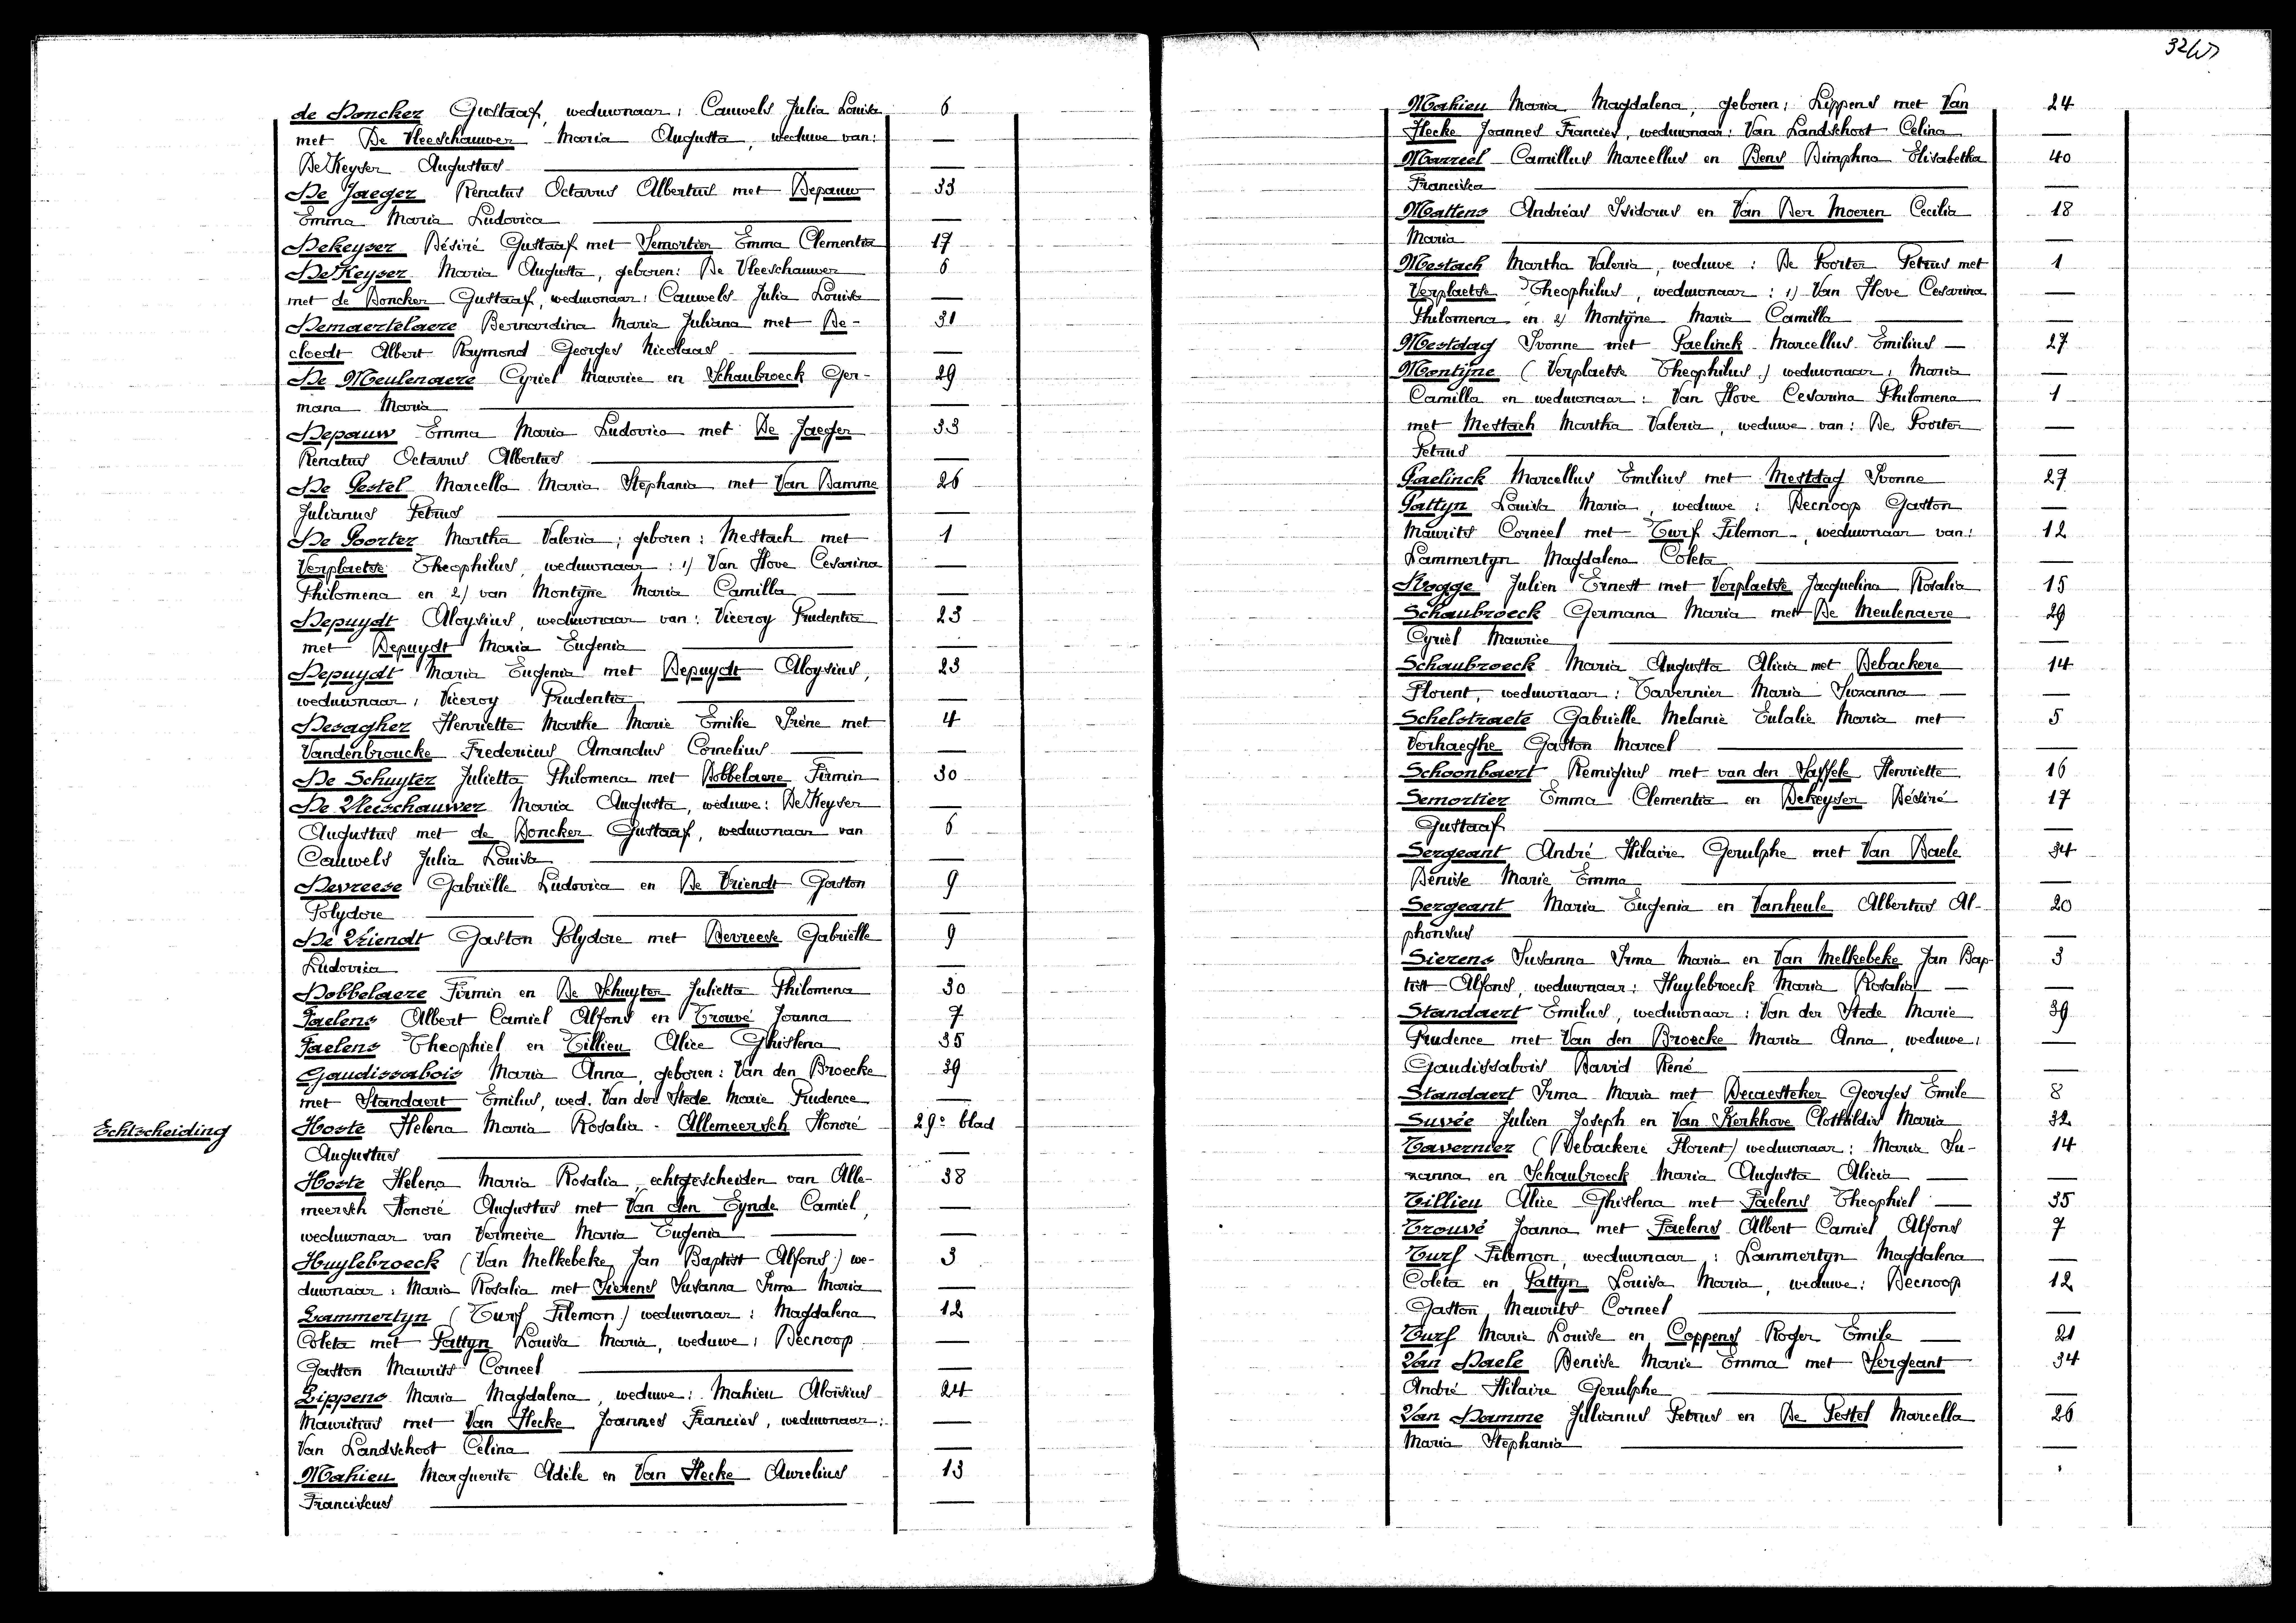 32
de Doncker Gustaaf, weduwnaar: Cauwels Julia Louisa 6
met De Vleeschauwer Maria Augusta, weduwe van: —
De Keyser Augustus —
De Jaeger Renatus Octavus Albertus met Depauw 33
Emma Maria Ludovica —
Dekeyser Désiré Gustaaf met Semortier Emma Clementia 17
De Keyser Maria Augusta, geboren: De Vleeschauwer 6
met de Doncker Gustaaf, weduwnaar: Cauwels Julia Louisa —
Demaertelaere Bernardina Maria Juliana met De- 31
cloedt Albert Raymond Georges Nicolaas —
De Meulenaere Cyriel Maurice en Schaubroeck Ger- 29
mana Maria —
Depauw Emma Maria Ludovica met De Jaeger 33
Renatus Octavus Albertus —
De Pestel Marcella Maria Stephania met Van Damme 26
Julianus Petrus —
De Poorter Martha Valeria; geboren: Mestach met 1
Verplaetse Theophilus, weduwnaar: 1) Van Hove Cesarina —
Philomena en 2) van Montÿne Maria Camilla —
Depuydt Aloysius, weduwnaar van: Viceroy Prudentia 23
met Depuydt Maria Eugenia —
Depuydt Maria Eugenia met Depuydt Aloysius, 23
weduwnaar: Viceroy Prudentia —
Desagher Henriette Marthe Marie Emilie Irène met 4
Vandenbroucke Fredericus Amandus Cornelius —
De Schuyter Julietta Philomena met Dobbelaere Firmin 30
De Vleeschauwer Maria Augusta, weduwe: De Keyser —
Augustus met de Doncker Gustaaf, weduwnaar van 6
Cauwels Julia Louisa —
Devreese Gabriëlle Ludovica en De Vriendt Gaston 9
Polydore —
De Vriendt Gaston Polydore met Devreese Gabriëlle 9
Ludovica —
Dobbelaere Firmin en De Schuyter Julietta Philomena 30
Faelens Albert Camiel Alfons en Trouvé Joanna 7
Faelens Theophiel en Tillieu Alice Ghislena 35
Gaudissabois Maria Anna, geboren: Van den Broecke 39
met Standaert Emilus, wed. Van der Stede Marie Prudence —
Echtscheiding Hoste Helena Maria Rosalia - Allemeersch Honoré 29e blad
Augustus —
Hoste Helena Maria Rosalia, echtgescheiden van Alle- 38
meersch Honoré Augustus met Van den Eynde Camiel, —
weduwnaar van Vermeire Maria Eugenia —
Huylebroeck (Van Melkebeke Jan Baptist Alfons) we- 3
duwnaar: Maria Rosalia met Sierens Susanna Irma Maria —
Lammertyn (Turf Filemon) weduwnaar: Magdalena 12
Coleta met Pattyn Louisa Maria, weduwe: Decnoop —
Gaston Maurits Corneel —
Lippens Maria Magdalena, weduwe: Mahieu Aloïsius 24
Mauritius met Van Hecke Joannes Francies, weduwnaar: —
Van Landschoot Celina —
Mahieu Marguerite Adèle en Van Hecke Aurelius 13
Franciscus —
Mahieu Maria Magdalena, geboren: Lippens met Van 24
Hecke Joannes Francies, weduwnaar: Van Landschoot Celina —
Marreel Camillus Marcellus en Bens Dimphna Elisabetha 40
Francisca —
Mattens Andréas Isidorus en Van Der Moeren Cecilia 18
Maria —
Mestach Martha Valeria, weduwe: De Poorter Petrus met 1
Verplaetse Theophilus, weduwnaar: 1) Van Hove Cesarina —
Philomena en 2) Montÿne Maria Camilla —
Mestdag Ivonne met Paelinck Marcellus Emilius — 27
Montÿne (Verplaetse Theophilus) weduwnaar: Maria —
Camilla en weduwnaar: Van Hove Cesarina Philomena 1
met Mestach Martha Valeria, weduwe van: De Poorter —
Petrus —
Paelinck Marcellus Emilius met Mestdag Ivonne 27
Pattyn Louisa Maria, weduwe: Decnoop Gaston —
Maurits Corneel met Turf Filemon, weduwnaar van: 12
Lammertyn Magdalena Coleta —
Rogge Julien Ernest met Verplaetse Jacquelina Rosalia 15
Schaubroeck Germana Maria met De Meulenaere 29
Cyriel Maurice —
Schaubroeck Maria Augusta Alicia met Debackere 14
Florent, weduwnaar: Tavernier Maria Suzanna —
Schelstraete Gabriëlle Melanie Eulalie Maria met 5
Verhaeghe Gaston Marcel —
Schoonbaert Remigius met van den Sassele Henriette 16
Semortier Emma Clementia en Dekeyser Désiré 17
Gustaaf —
Sergeant André Hilaire Gerulphe met Van Daele 34
Denise Marie Emma —
Sergeant Maria Eugenia en Vanheule Albertus Al- 20
phonsus —
Sierens Susanna Irma Maria en Van Melkebeke Jan Bap- 3
tist Alfons, weduwnaar: Huylebroeck Maria Rosalia —
Standaert Emilus, weduwnaar: Van der Stede Marie 39
Prudence met Van den Broecke Maria Anna, weduwe: —
Gaudissabois David René —
Standaert Irma Maria met Decaesteker Georges Emile 8
Suvée Julien Joseph en Van Kerkhove Clothildis Maria 32
Tavernier (Debackere Florent) weduwnaar: Maria Su- 14
zanna en Schaubroeck Maria Augusta Alicia —
Tillieu Alice Ghislena met Faelens Theophiel — 35
Trouvé Joanna met Faelens Albert Camiel Alfons 7
Turf Filemon, weduwnaar: Lammertyn Magdalena —
Coleta en Pattyn Louisa Maria, weduwe: Decnoop 12
Gaston Maurits Corneel —
Turf Marie Louise en Coppens Roger Emile — 21
Van Daele Denise Marie Emma met Sergeant 34
André Hilaire Gerulphe —
Van Damme Julianus Petrus en De Pestel Marcella 26
Maria Stephania —